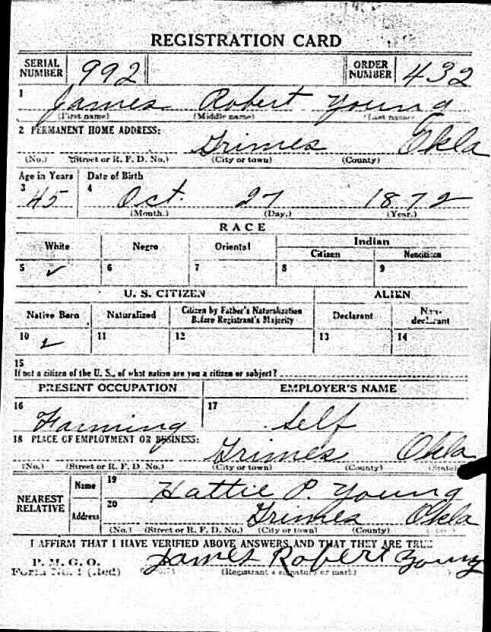 REGISTRATION CARD
SERIAL NUMBER 992 ORDER NUMBER 432
1 James Robert Young
(First name) (Middle name) (Last name)
2 PERMANENT HOME ADDRESS: Grimes Okla
(No.) (Street or R. F. D. No.) (City or town) (County)
Age in Years Date of Birth
3 45 4 Oct. 27 1872
(Month.) (Day.) (Year.)
RACE
White Negro Oriental Indian
Citizen Noncitizen
5 ✓ 6 7 8 9
U. S. CITIZEN ALIEN
Native Born Naturalized Citizen by Father's Naturalization Before Registrant's Majority Declarant Non-declarant
10 ✓ 11 12 13 14
15
If not a citizen of the U. S., of what nation are you a citizen or subject?
PRESENT OCCUPATION EMPLOYER'S NAME
16 Farming 17 Self
18 PLACE OF EMPLOYMENT OR BUSINESS: Grimes Okla
(No.) (Street or R. F. D. No.) (City or town) (County) (State)
NEAREST RELATIVE Name 19 Hattie P. Young
Address 20 Grimes Okla
(No.) (Street or R. F. D. No.) (City or town) (County)
I AFFIRM THAT I HAVE VERIFIED ABOVE ANSWERS AND THAT THEY ARE TRUE
P. M. G. O.
Form No. 1 (Red) James Robert Young
(Registrant's signature or mark)